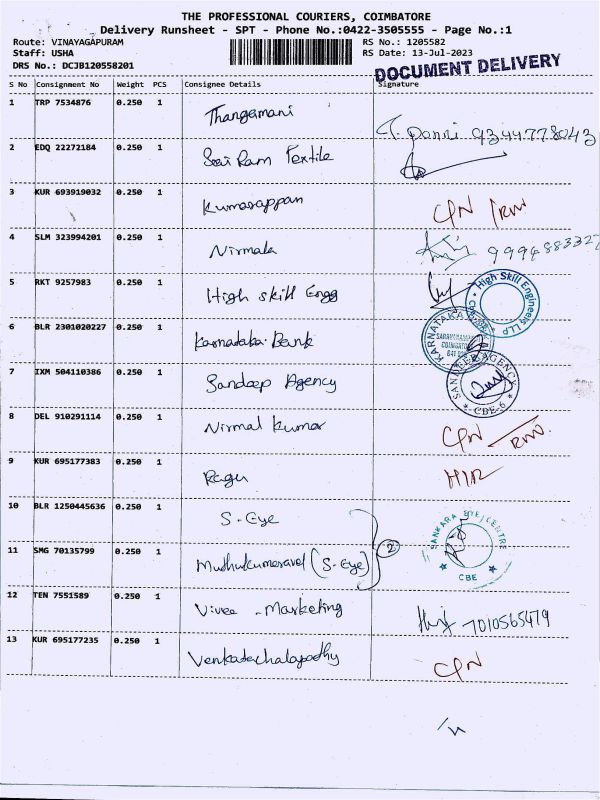 THE PROFESSIONAL COURIERS, COIMBATORE
Delivery Runsheet - SPT - Phone No.:0422-3505555 - Page No.:1
Route: VINAYAGAPURAM RS No.: 1205582
Staff: USHA RS Date: 13-Jul-2023
DRS No.: DCJB120558201 DOCUMENT DELIVERY
S No Consignment No Weight PCS Consignee Details Signature
1 TRP 7534876 0.250 1 Thangamani 9344778043
2 EDQ 22272184 0.250 1 Sai Ram Textile
3 KUR 693919032 0.250 1 Kumarappan
4 SLM 323994201 0.250 1 Nirmala 9994883327
5 RKT 9257983 0.250 1 High skill Engg High Skill Engineers LLP
6 BLR 2301020227 0.250 1 Karnataka Bank KARNATAKA
7 IXM 504110386 0.250 1 Sandeep Agency SANDEEP AGENCY CBE-6
8 DEL 910291114 0.250 1 Nirmal Kumar
9 KUR 695177383 0.250 1 Ragu
10 BLR 1250445636 0.250 1 S-Eye SANKARA EYE CENTRE CBE
11 SMG 70135799 0.250 1 Muthukumaravel (S-Eye) 2
12 TEN 7551589 0.250 1 Vivee - Marketing 7010565479
13 KUR 695177235 0.250 1 Venkatachalapadhy